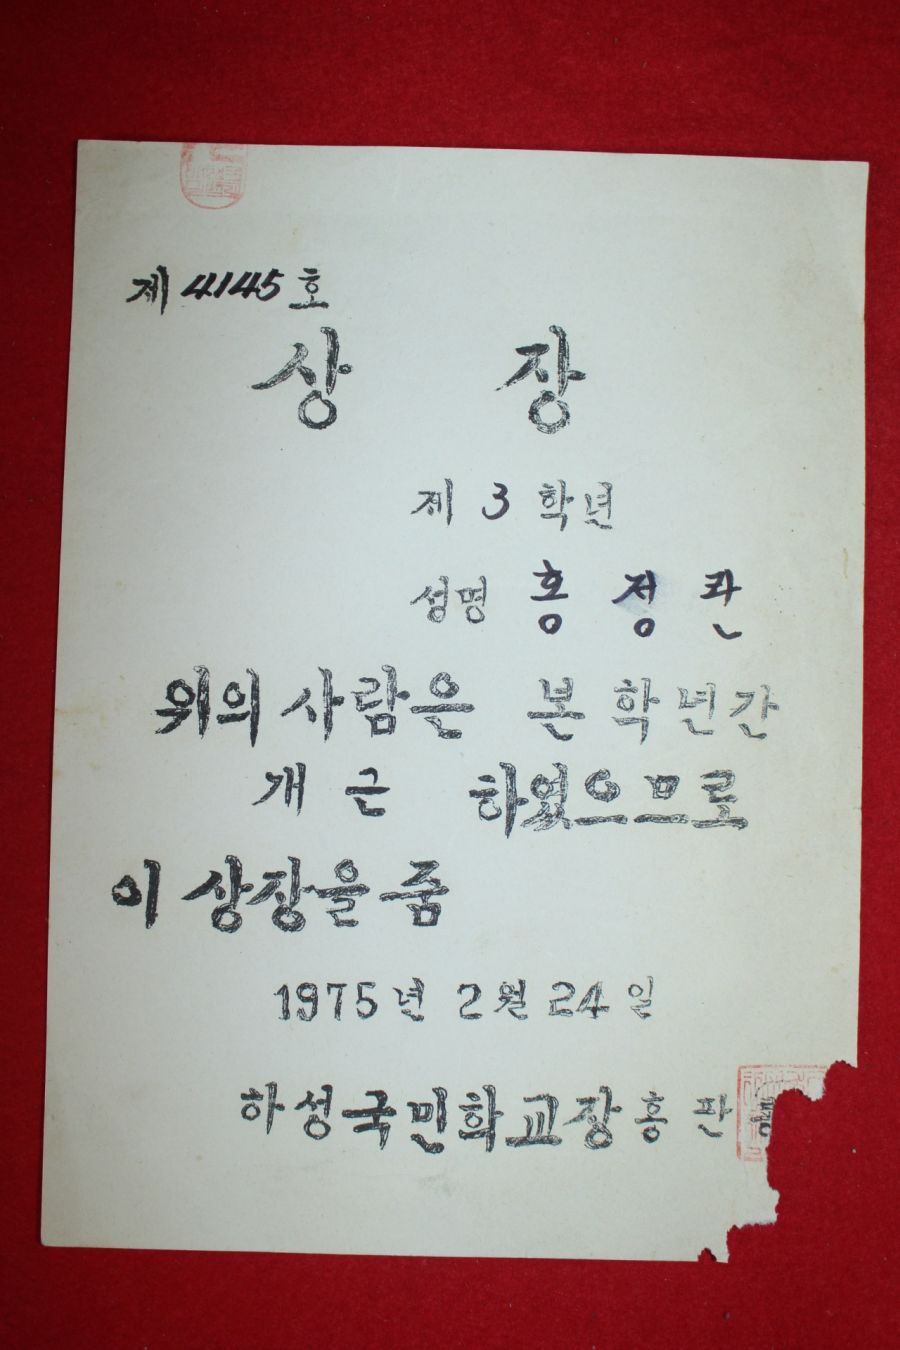 제 4145 호
상 장
제 3 학년
성명 홍 정 관
위의 사람은 본 학년간
개 근 하였으므로
이 상장을 줌
1975 년 2 월 24 일
하성국민학교장 홍 판